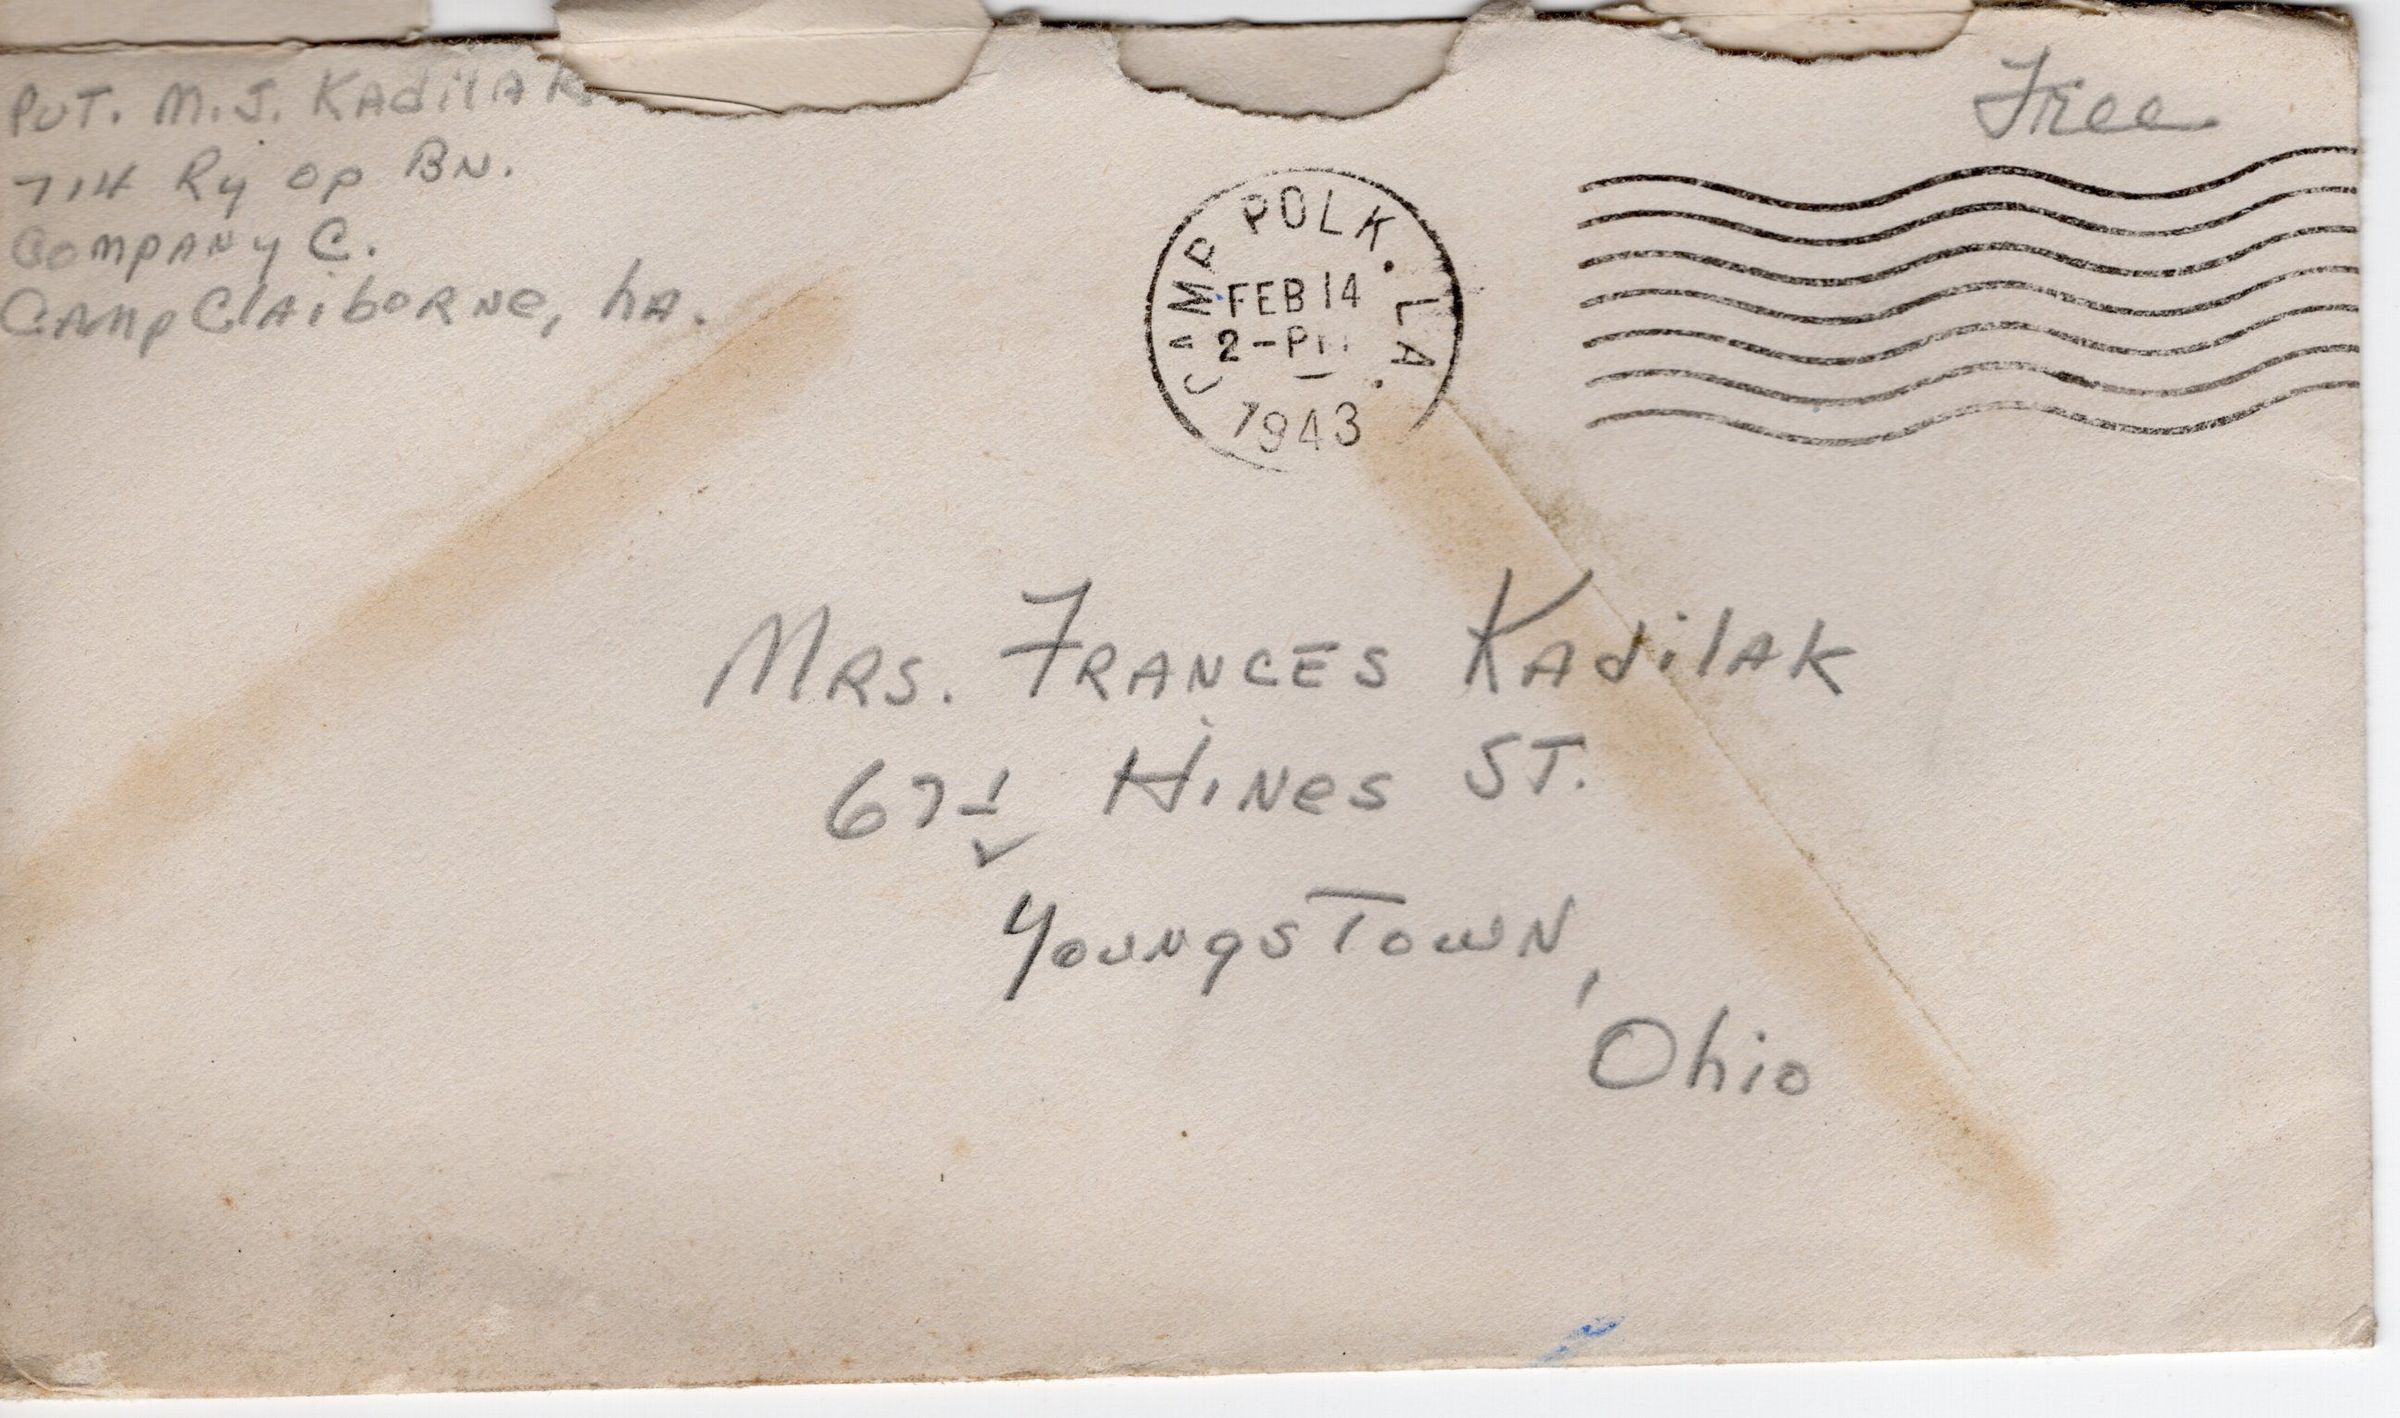 PVT. M.J. KAdilAK
714 Ry OP BN.
COMPANY C.
CAMP ClAiBORNe, LA.
Free
CAMP POLK. LA.
FEB 14
2-PM
1943
MRS. FRANCES KAdilAK
67½ HiNes ST.
YOUNgSTOWN,
Ohio